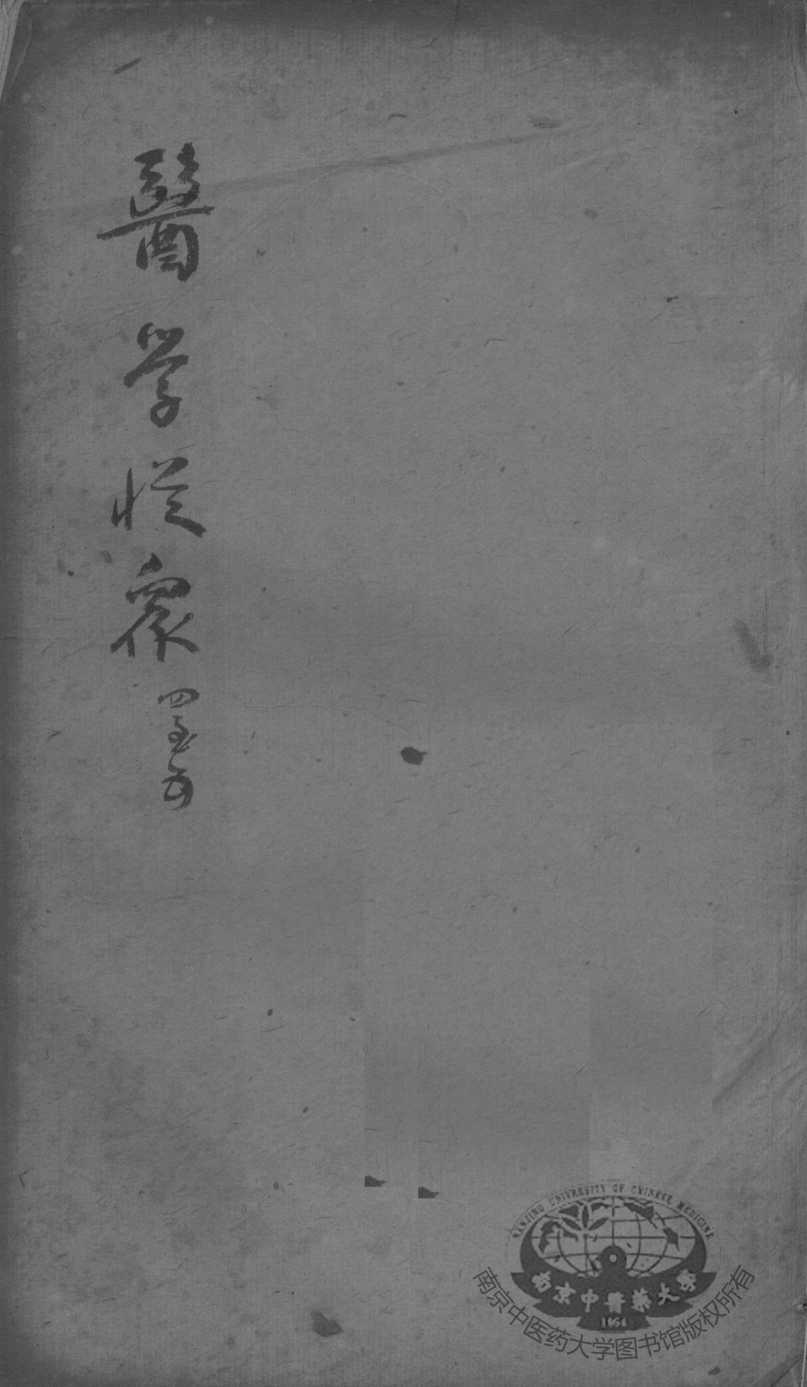 醫學從衆四至五
NANJING UNIVERSITY OF CHINESE MEDICINE
南京中醫藥大學
1954
南京中医药大学图书馆版权所有